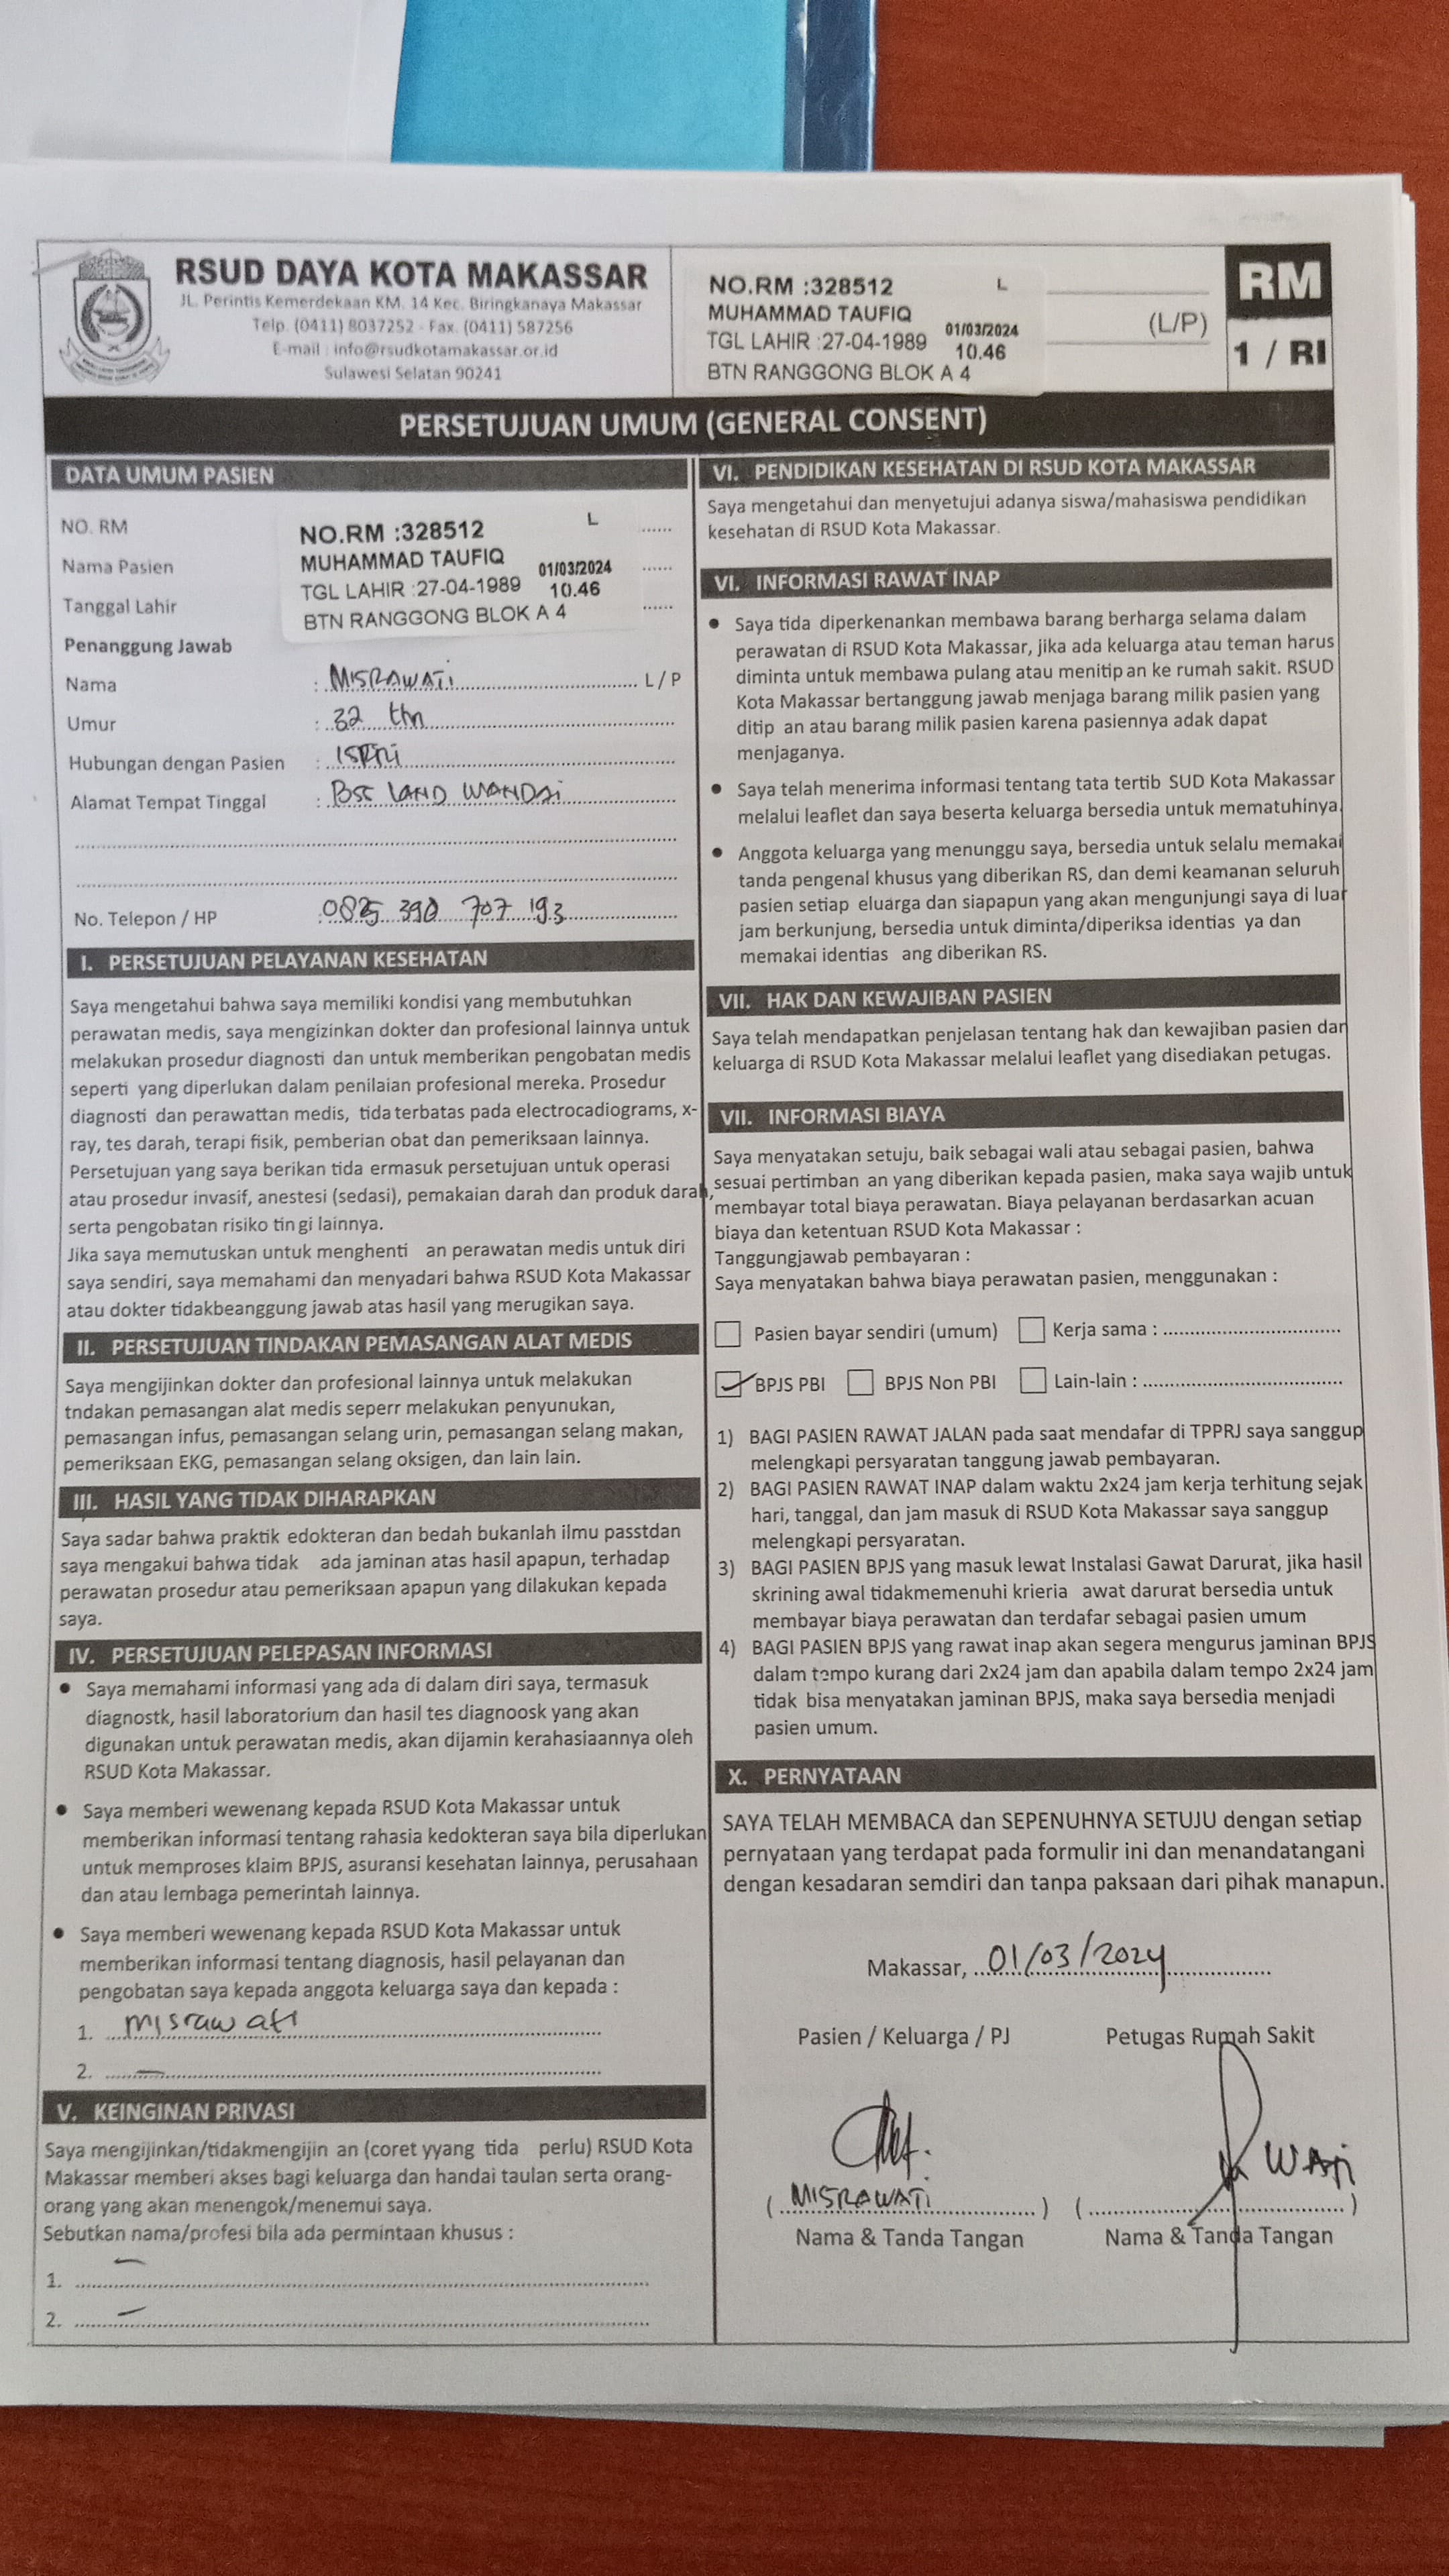 RSUD DAYA KOTA MAKASSAR
JL. Perintis Kemerdekaan KM. 14 Kec. Biringkanaya Makassar
Telp. (0411) 8037252 - Fax. (0411) 587256
E-mail : info@rsudkotamakassar.or.id
Sulawesi Selatan 90241
NO.RM :328512 L
MUHAMMAD TAUFIQ
TGL LAHIR :27-04-1989 01/03/2024 10.46
BTN RANGGONG BLOK A 4
(L/P)
RM
1 / RI
PERSETUJUAN UMUM (GENERAL CONSENT)
DATA UMUM PASIEN
NO. RM
Nama Pasien
Tanggal Lahir
NO.RM :328512 L
MUHAMMAD TAUFIQ
TGL LAHIR :27-04-1989 01/03/2024 10.46
BTN RANGGONG BLOK A 4
Penanggung Jawab
Nama : MISRAWATI L / P
Umur : 32 thn
Hubungan dengan Pasien : ISTRI
Alamat Tempat Tinggal : LAND
No. Telepon / HP : 390 707 193
I. PERSETUJUAN PELAYANAN KESEHATAN
Saya mengetahui bahwa saya memiliki kondisi yang membutuhkan
perawatan medis, saya mengizinkan dokter dan profesional lainnya untuk
melakukan prosedur diagnosti dan untuk memberikan pengobatan medis
seperti yang diperlukan dalam penilaian profesional mereka. Prosedur
diagnosti dan perawattan medis, tida terbatas pada electrocadiograms, x-
ray, tes darah, terapi fisik, pemberian obat dan pemeriksaan lainnya.
Persetujuan yang saya berikan tida ermasuk persetujuan untuk operasi
atau prosedur invasif, anestesi (sedasi), pemakaian darah dan produk darah,
serta pengobatan risiko tin gi lainnya.
Jika saya memutuskan untuk menghenti an perawatan medis untuk diri
saya sendiri, saya memahami dan menyadari bahwa RSUD Kota Makassar
atau dokter tidakbeanggung jawab atas hasil yang merugikan saya.
II. PERSETUJUAN TINDAKAN PEMASANGAN ALAT MEDIS
Saya mengijinkan dokter dan profesional lainnya untuk melakukan
tndakan pemasangan alat medis seperr melakukan penyunukan,
pemasangan infus, pemasangan selang urin, pemasangan selang makan,
pemeriksaan EKG, pemasangan selang oksigen, dan lain lain.
III. HASIL YANG TIDAK DIHARAPKAN
Saya sadar bahwa praktik edokteran dan bedah bukanlah ilmu passtdan
saya mengakui bahwa tidak ada jaminan atas hasil apapun, terhadap
perawatan prosedur atau pemeriksaan apapun yang dilakukan kepada
saya.
IV. PERSETUJUAN PELEPASAN INFORMASI
• Saya memahami informasi yang ada di dalam diri saya, termasuk
diagnostk, hasil laboratorium dan hasil tes diagnoosk yang akan
digunakan untuk perawatan medis, akan dijamin kerahasiaannya oleh
RSUD Kota Makassar.
• Saya memberi wewenang kepada RSUD Kota Makassar untuk
memberikan informasi tentang rahasia kedokteran saya bila diperlukan
untuk memproses klaim BPJS, asuransi kesehatan lainnya, perusahaan
dan atau lembaga pemerintah lainnya.
• Saya memberi wewenang kepada RSUD Kota Makassar untuk
memberikan informasi tentang diagnosis, hasil pelayanan dan
pengobatan saya kepada anggota keluarga saya dan kepada :
1. misrawati
2. —
V. KEINGINAN PRIVASI
Saya mengijinkan/tidakmengijin an (coret yyang tida perlu) RSUD Kota
Makassar memberi akses bagi keluarga dan handai taulan serta orang-
orang yang akan menengok/menemui saya.
Sebutkan nama/profesi bila ada permintaan khusus :
1. —
2. —
VI. PENDIDIKAN KESEHATAN DI RSUD KOTA MAKASSAR
Saya mengetahui dan menyetujui adanya siswa/mahasiswa pendidikan
kesehatan di RSUD Kota Makassar.
VI. INFORMASI RAWAT INAP
• Saya tida diperkenankan membawa barang berharga selama dalam
perawatan di RSUD Kota Makassar, jika ada keluarga atau teman harus
diminta untuk membawa pulang atau menitip an ke rumah sakit. RSUD
Kota Makassar bertanggung jawab menjaga barang milik pasien yang
ditip an atau barang milik pasien karena pasiennya adak dapat
menjaganya.
• Saya telah menerima informasi tentang tata tertib SUD Kota Makassar
melalui leaflet dan saya beserta keluarga bersedia untuk mematuhinya.
• Anggota keluarga yang menunggu saya, bersedia untuk selalu memakai
tanda pengenal khusus yang diberikan RS, dan demi keamanan seluruh
pasien setiap eluarga dan siapapun yang akan mengunjungi saya di luar
jam berkunjung, bersedia untuk diminta/diperiksa identias ya dan
memakai identias ang diberikan RS.
VII. HAK DAN KEWAJIBAN PASIEN
Saya telah mendapatkan penjelasan tentang hak dan kewajiban pasien dan
keluarga di RSUD Kota Makassar melalui leaflet yang disediakan petugas.
VII. INFORMASI BIAYA
Saya menyatakan setuju, baik sebagai wali atau sebagai pasien, bahwa
sesuai pertimban an yang diberikan kepada pasien, maka saya wajib untuk
membayar total biaya perawatan. Biaya pelayanan berdasarkan acuan
biaya dan ketentuan RSUD Kota Makassar :
Tanggungjawab pembayaran :
Saya menyatakan bahwa biaya perawatan pasien, menggunakan :
Pasien bayar sendiri (umum) Kerja sama :
✓ BPJS PBI BPJS Non PBI Lain-lain :
1) BAGI PASIEN RAWAT JALAN pada saat mendafar di TPPRJ saya sanggup
melengkapi persyaratan tanggung jawab pembayaran.
2) BAGI PASIEN RAWAT INAP dalam waktu 2x24 jam kerja terhitung sejak
hari, tanggal, dan jam masuk di RSUD Kota Makassar saya sanggup
melengkapi persyaratan.
3) BAGI PASIEN BPJS yang masuk lewat Instalasi Gawat Darurat, jika hasil
skrining awal tidakmemenuhi krieria awat darurat bersedia untuk
membayar biaya perawatan dan terdafar sebagai pasien umum
4) BAGI PASIEN BPJS yang rawat inap akan segera mengurus jaminan BPJS
dalam tempo kurang dari 2x24 jam dan apabila dalam tempo 2x24 jam
tidak bisa menyatakan jaminan BPJS, maka saya bersedia menjadi
pasien umum.
X. PERNYATAAN
SAYA TELAH MEMBACA dan SEPENUHNYA SETUJU dengan setiap
pernyataan yang terdapat pada formulir ini dan menandatangani
dengan kesadaran semdiri dan tanpa paksaan dari pihak manapun.
Makassar, 01/03/2024
Pasien / Keluarga / PJ Petugas Rumah Sakit
WATI
( MISRAWATI ) ( )
Nama & Tanda Tangan Nama & Tanda Tangan